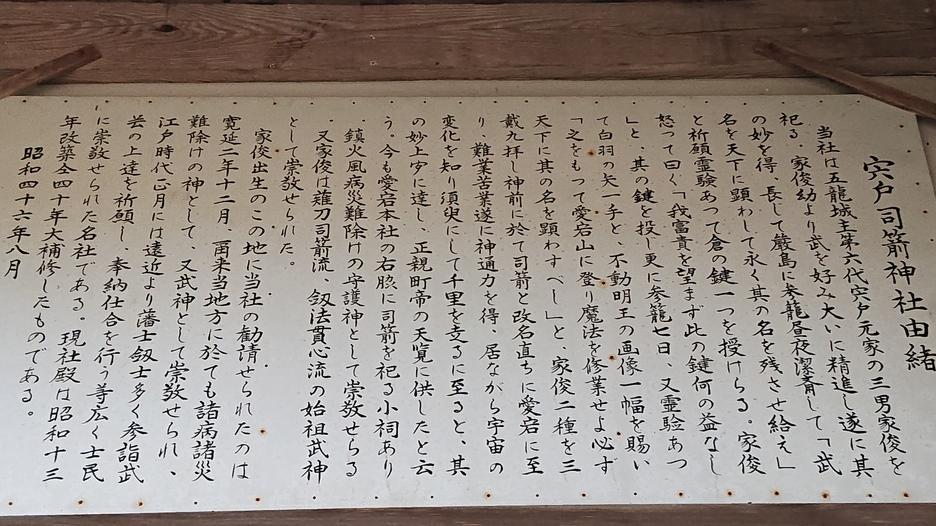 宍戸司箭神社由緒
当社は五龍城主第六代宍戸元家の三男家俊を
祀る。家俊幼より武を好み大いに精進し遂に其
の妙を得、長して厳島に参籠昼夜潔斎して「武
名を天下に顕わして永く其の名を残させ給え」
と祈願霊験あって倉の鍵一つを授けらる。家俊
怒って曰く「我富貴を望まず此の鍵何の益なし
」と、其の鍵を投し更に参籠七日、又霊験あつ
て白羽の矢一手と、不動明王の画像一幅を賜い
「之をもつて愛宕山に登り魔法を修業せよ必ず
天下に其の名を顕わすべし」と、家俊二種を三
戴九拝し神前に於て司箭と改名直ちに愛宕に至
り、難業苦業遂に神通力を得、居ながら宇宙の
変化を知り須臾にして千里を支るに至ると、其
の妙上天に達し、正親町帝の天覧に供したと云
う。今も愛宕本社の右脇に司箭を祀る小祠あり
鎮火風病災難除けの守護神として崇敬せらる
又家俊は薙刀司箭流、釼法貫心流の始祖武神
として崇敬せられた。
家俊出生のこの地に当社の勧請せられたのは
寛延二年十二月、爾来当地方に於ても諸病諸災
難除けの神として、又武神として崇敬せられ、
江戸時代正月には遠近より藩士釼士多く参詣武
芸の上達を祈願し、奉納仕合を行う等広く士民
に崇敬せられた名社である。現社殿は昭和十三
年改築仝四十年大補修したものである。
昭和四十六年八月